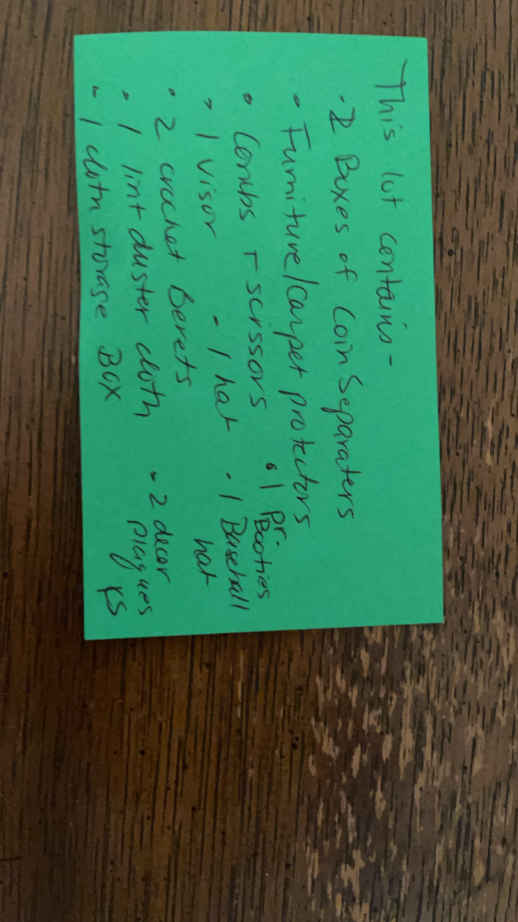 This lot contains -
· 2 Boxes of Coin Separaters
• Furniture/carpet protectors
• Combs + scrssors • 1 pr. Booties
• 1 visor - 1 hat • 1 Baseball hat
• 2 crochet Berets
• 1 lint duster cloth • 2 decor plaques
• 1 cloth storage Box